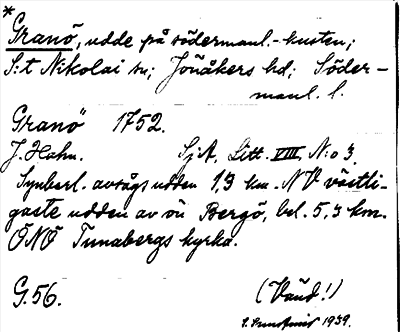 *
Granö, udde på södermanl.-kusten;
S:t Nikolai sn; Jönåkers hd; Söder-
manl. l.
Granö 1752.
J. Hahn. SjA, Litt. VIII, N:o 3.
Synberl. avsågs udden 1,3 km. NV västli-
gaste udden av ön Bergö, bel. 5,3 km.
ÖNÖ Tunabergs kyrka.
G. 56. (Vänd!)
1939.